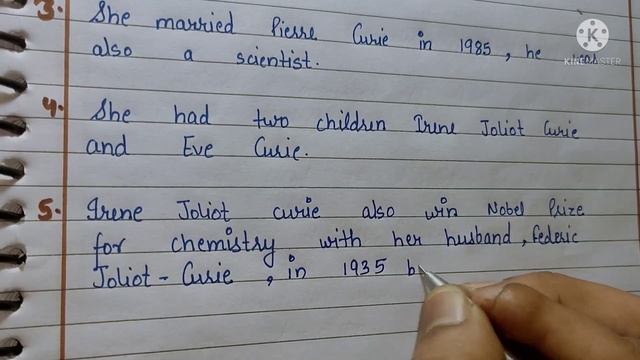 3. She married Pierre Curie in 1985, he was
also a scientist.
4. She had two children Irene Joliot Curie
and Eve Curie.
5. Irene Joliot curie also win Nobel Prize
for chemistry with her husband, Federic
Joliot - Curie, in 1935 b
K
KINEMASTER